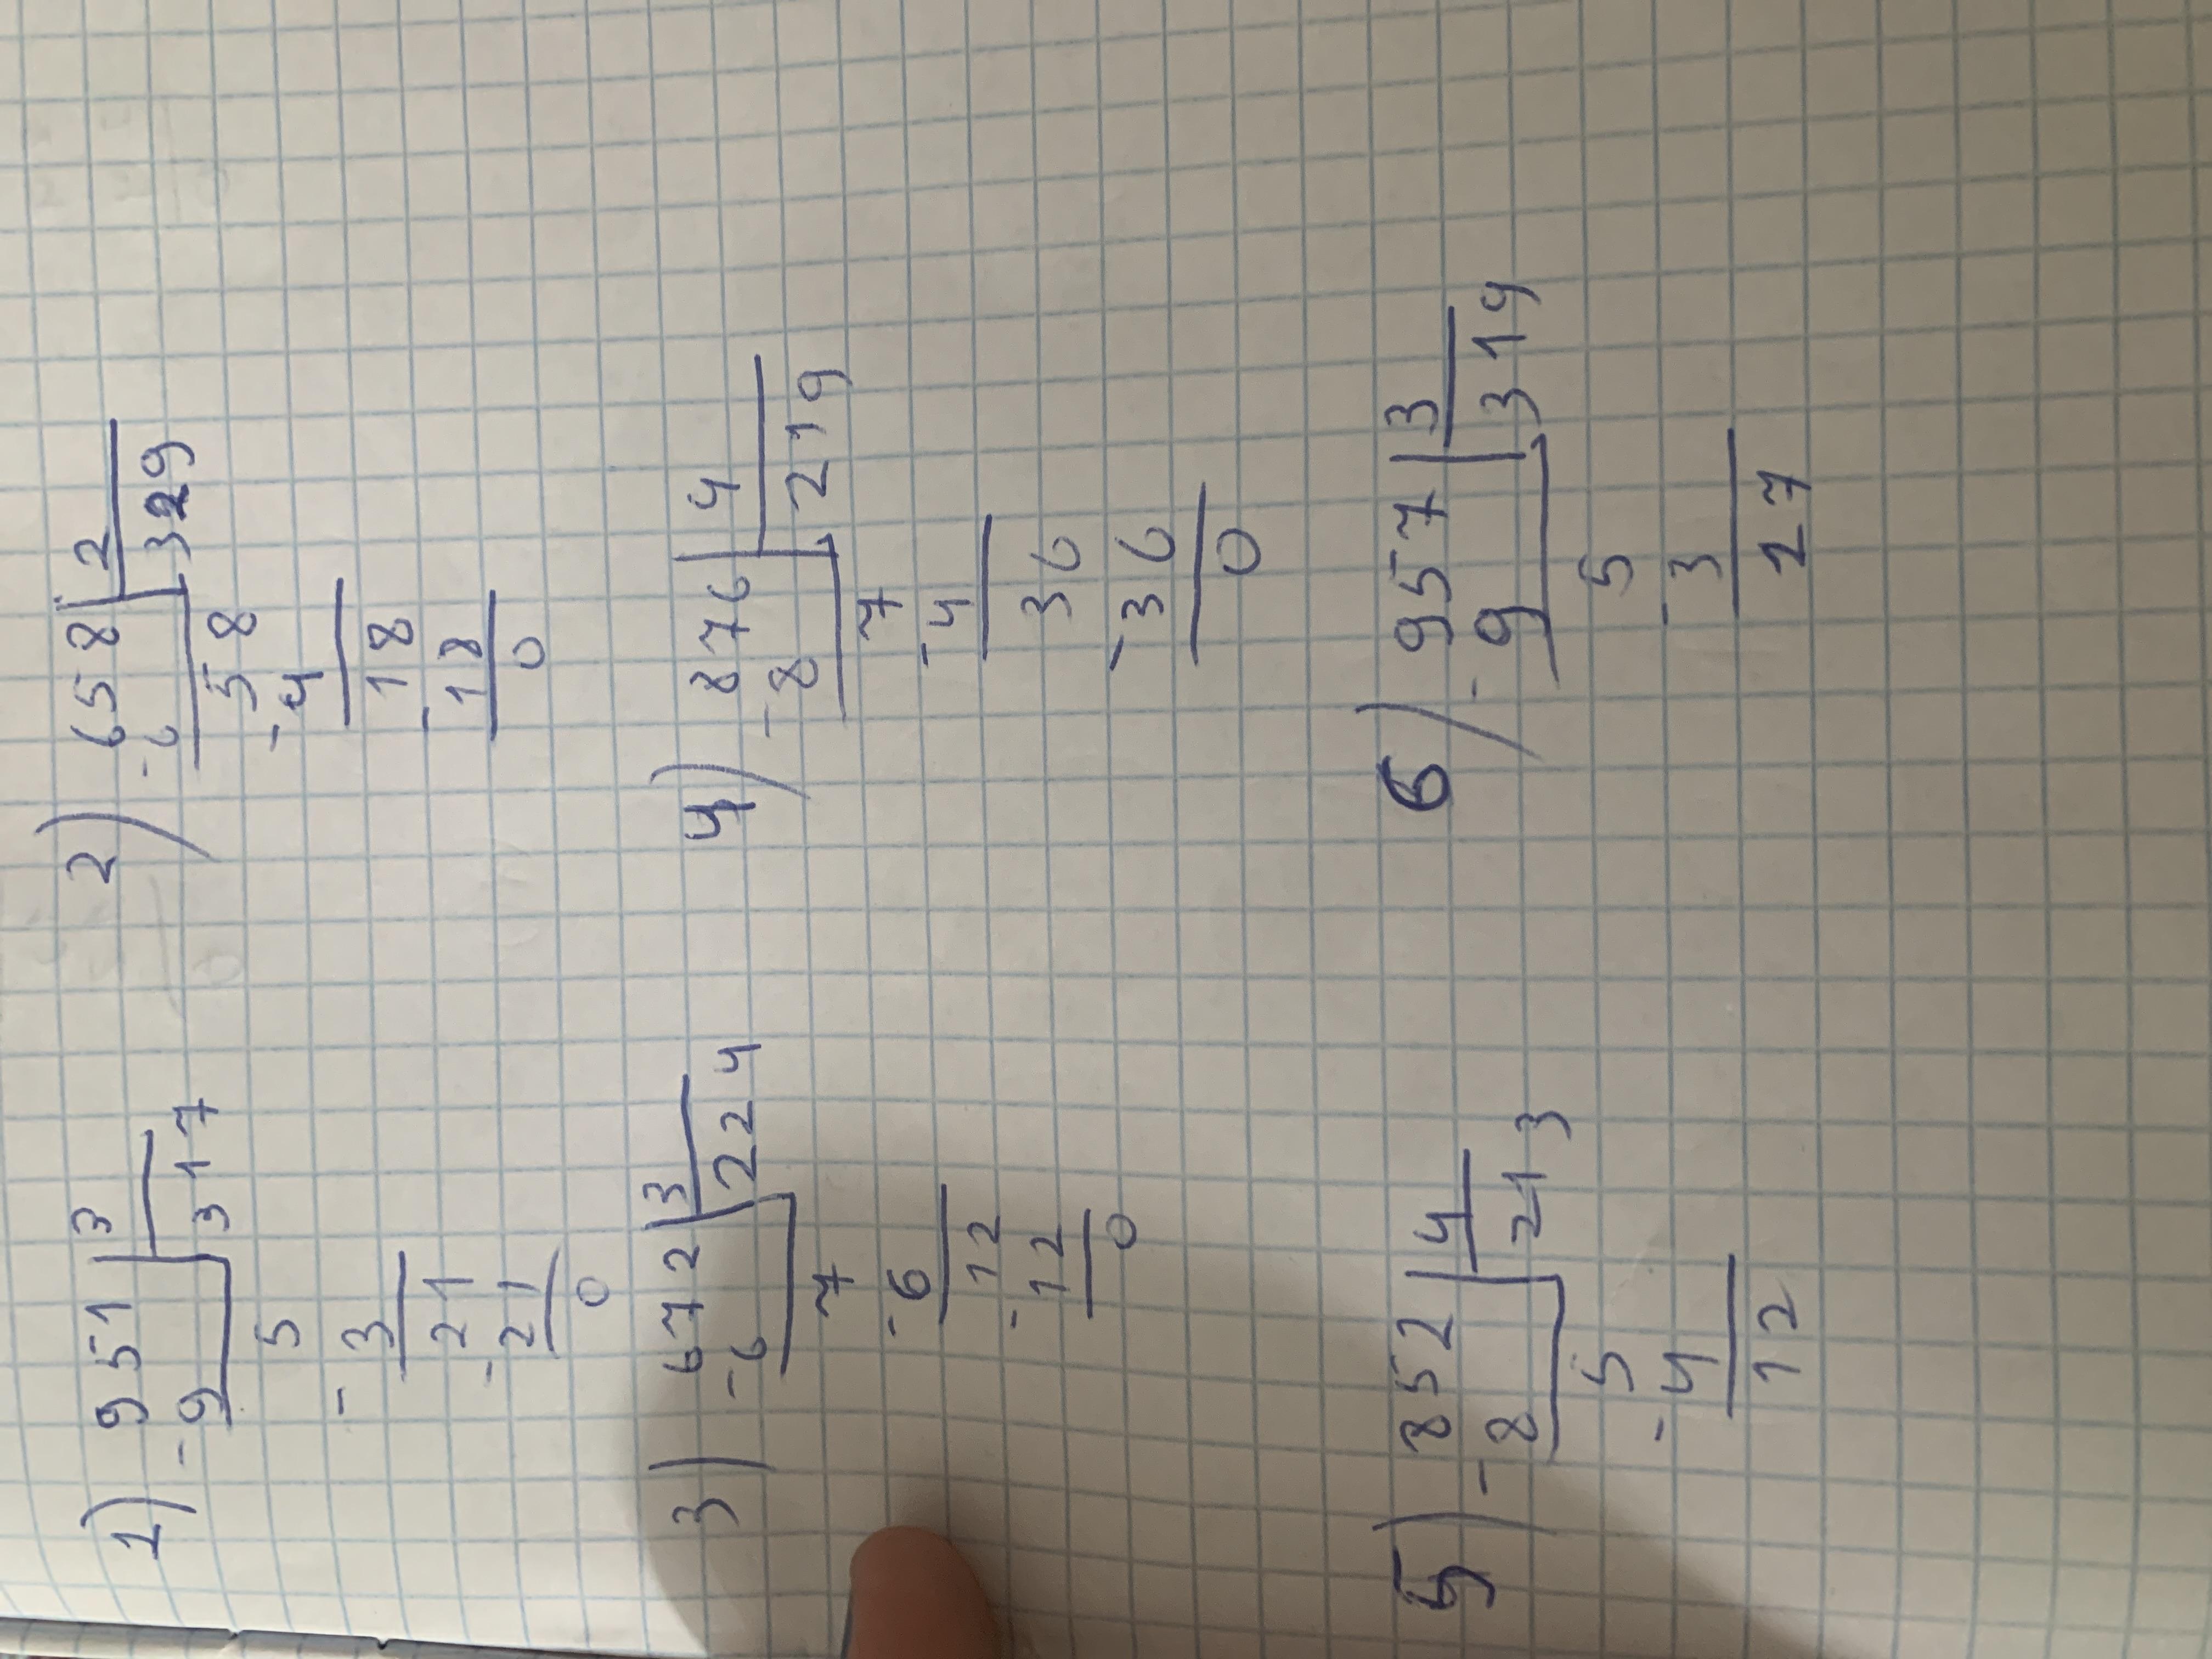 1) 951 | 3
-9 | 317
5
-3
21
-21
0
2) 658 | 2
-6 | 329
58
-4
18
-18
0
3) 672 | 3
-6 | 224
7
-6
12
-12
0
4) 876 | 4
-8 | 219
7
-4
36
-36
0
5) 852 | 4
-8 | 213
5
-4
12
6) 957 | 3
-9 | 319
5
-3
27